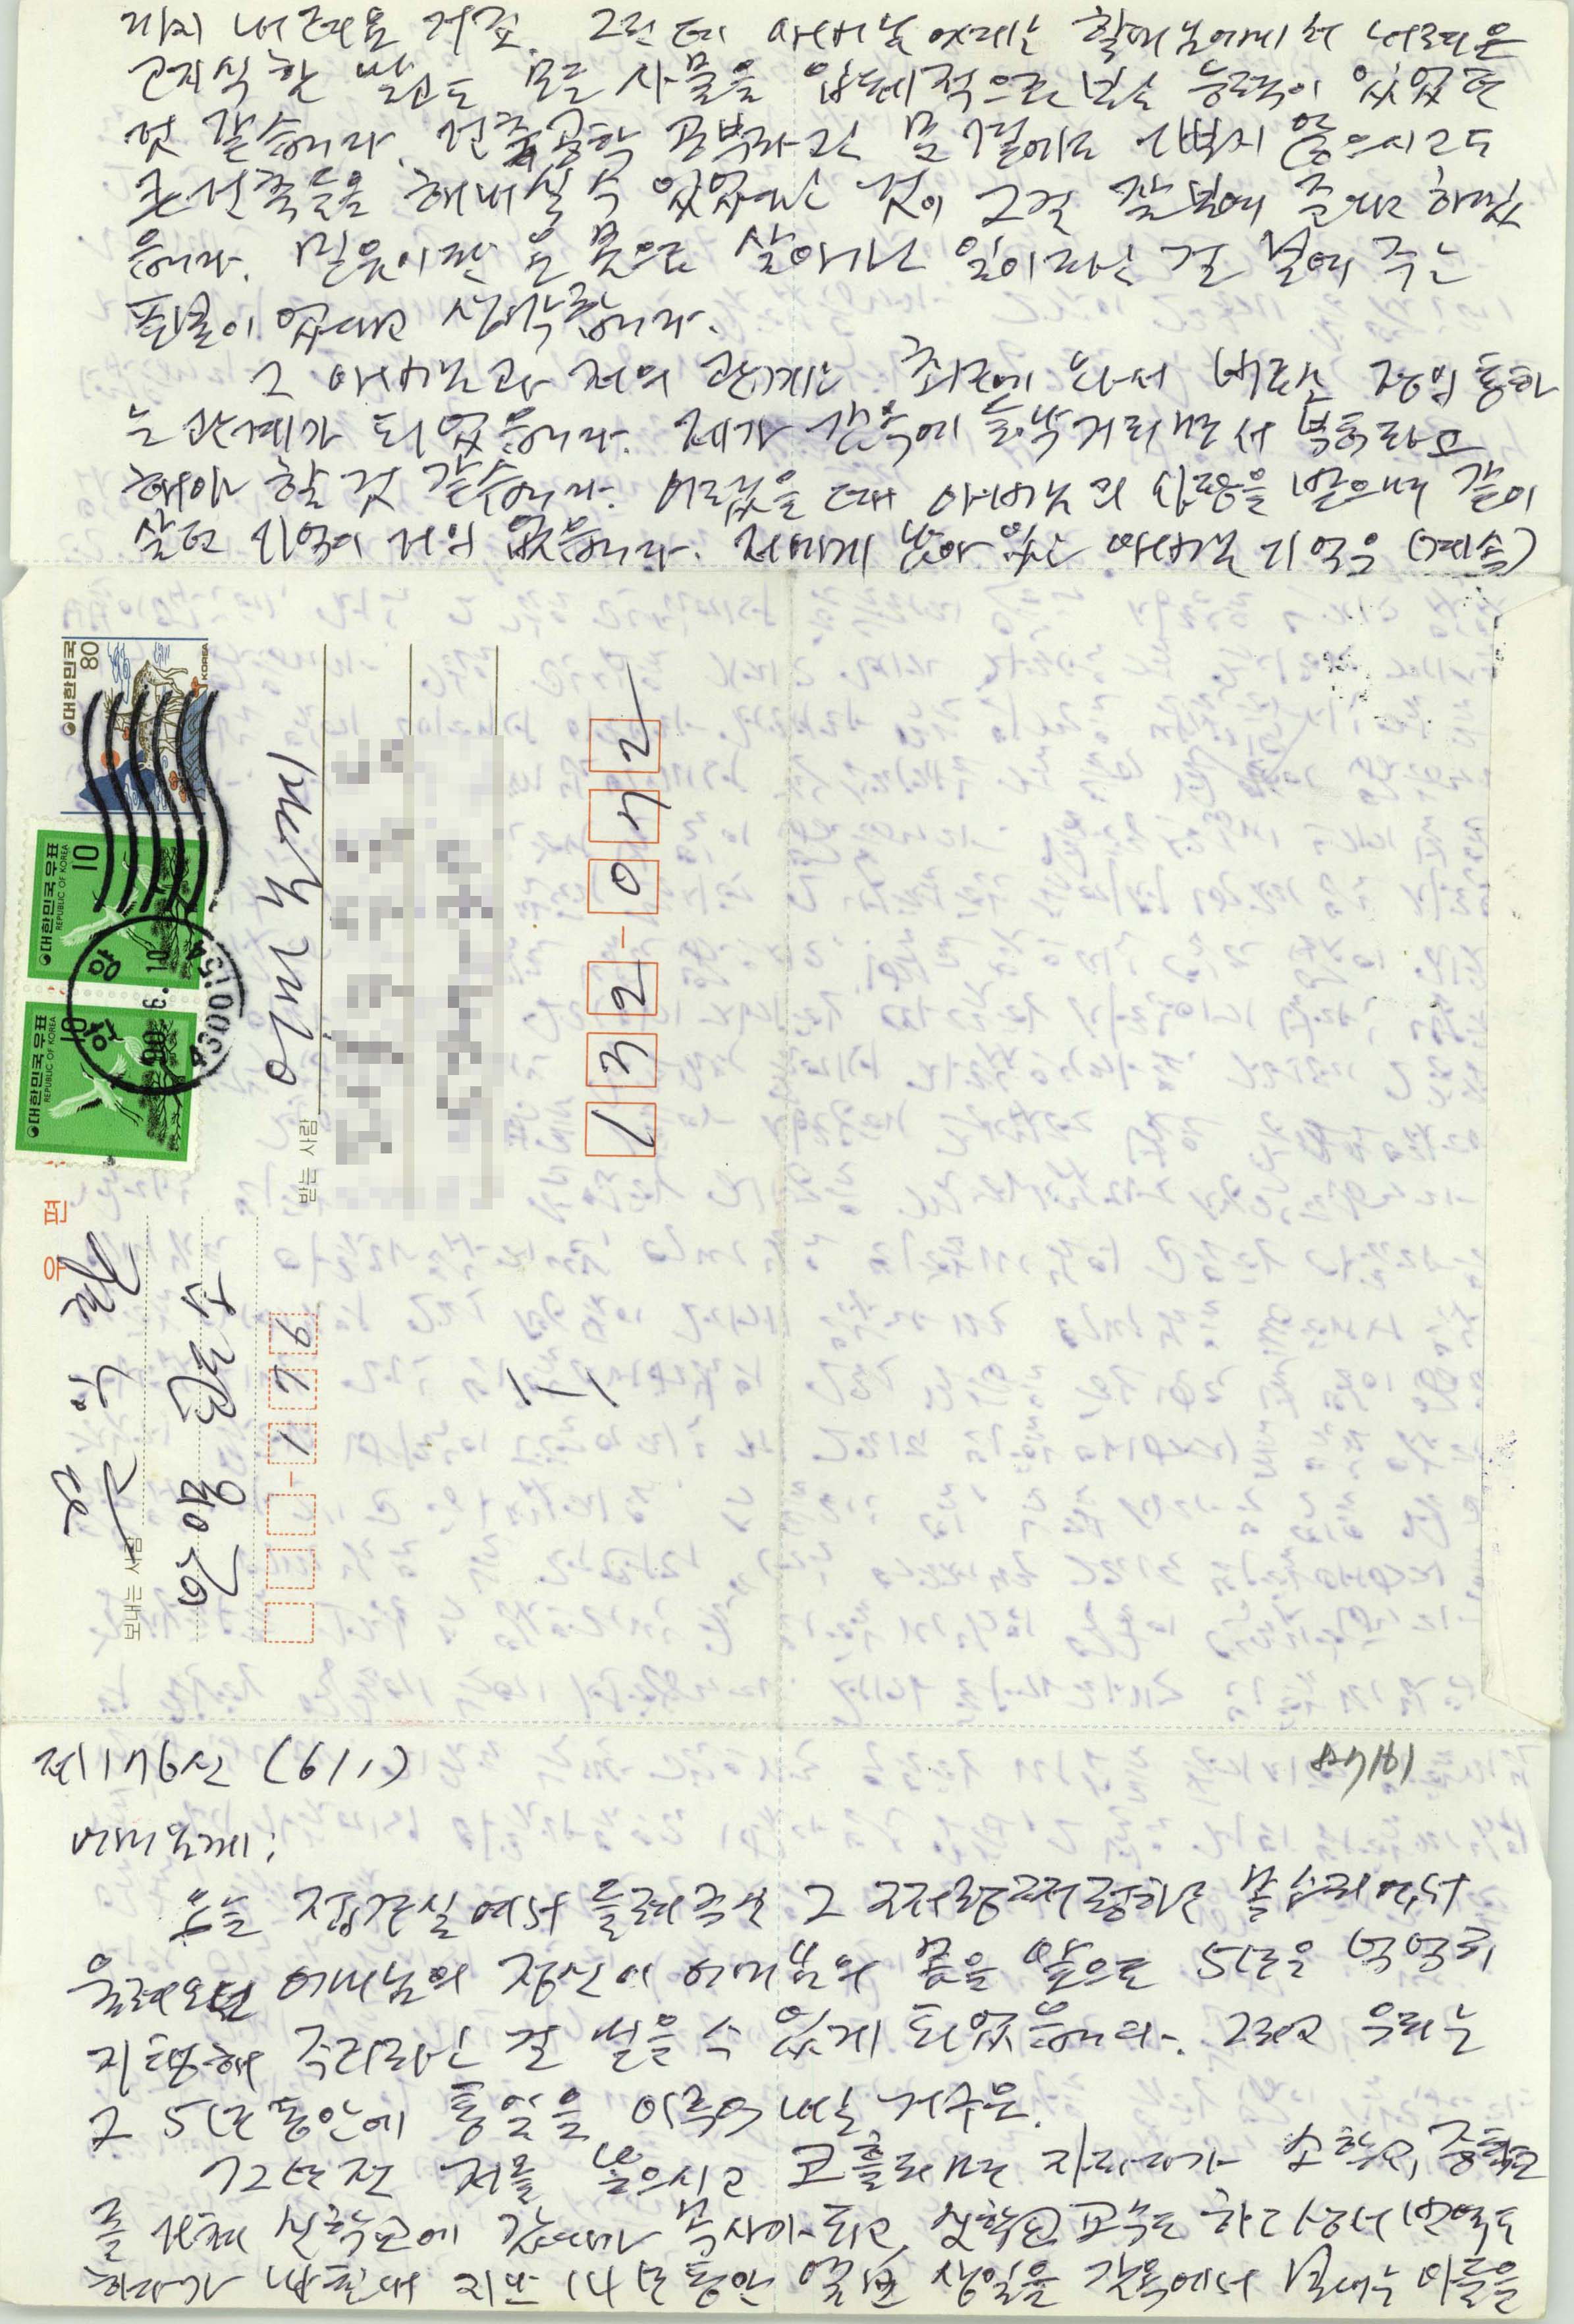 까지 내려온 거죠. 그런데 아버님에게는 할머님에게서 내려온
고지식한 말고도 모든 사물을 입체적으로 보는 능력이 있었던
것 같습니다. 건축공학 공부라곤 문 곁에도 가보지 않으시고도
큰 건축들을 해내실 수 있었다는 것이 그걸 잘 보여 준다고 하겠
습니다. 믿음이란 온 몸으로 살아가는 일이라는 걸 보여 주는
표본이 였다고 생각합니다.
그 아버님과 저의 관계는 최근에 와서 비로소 정이 통하
는 관계가 되었습니다. 제가 감옥에 들락거리면서 부터라고
해야 할 것 같습니다. 어렸을 때 아버님의 사랑을 받으며 같이
살던 기억이 거의 없습니다. 저에게 남아 있는 아버님 기억은 (계속)
대한민국 80 KOREA
대한민국우표 10 REPUBLIC OF KOREA
대한민국우표 10 REPUBLIC OF KOREA
안양
90. 6. 10
받는 사람
132-042
우편
보내는 사람
문익환
제176신 (6/1)
어머님께:
오늘 접견실에서 들려주신 그 쩌렁쩌렁하는 목소리에서
울려오던 어머님의 정신이 어머님의 몸을 앞으로 5년은 넉넉히
지탱해 주리라는 걸 믿을 수 있게 되었습니다. 그리고 우리는
그 5년 동안에 통일을 이룩해 내는 거구요.
72년 전 저를 낳으시고 코흘리며 자라다가 소학교, 중학교
를 거쳐 신학교에 갔다가 목사가 되고, 신학교 교수로 하라 성서 번역도
하다가 지난 14년 동안 생일을 감옥에서 보내는 아들을